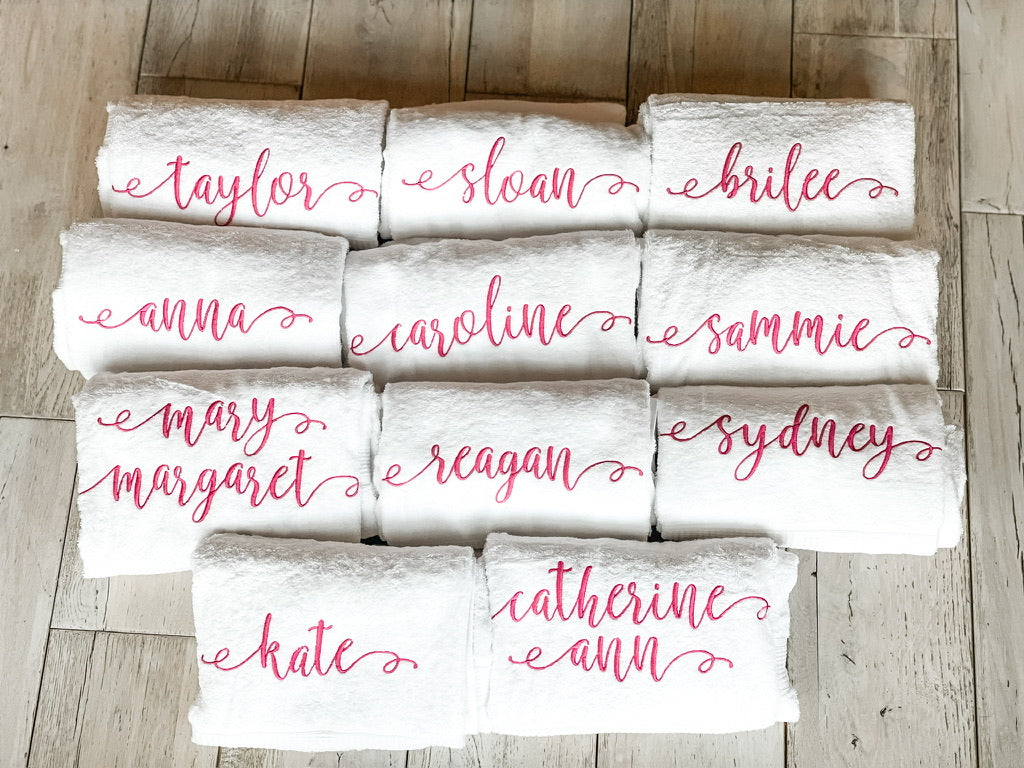 taylor
sloan
brilee
anna
caroline
sammie
mary
margaret
reagan
sydney
kate
catherine
ann